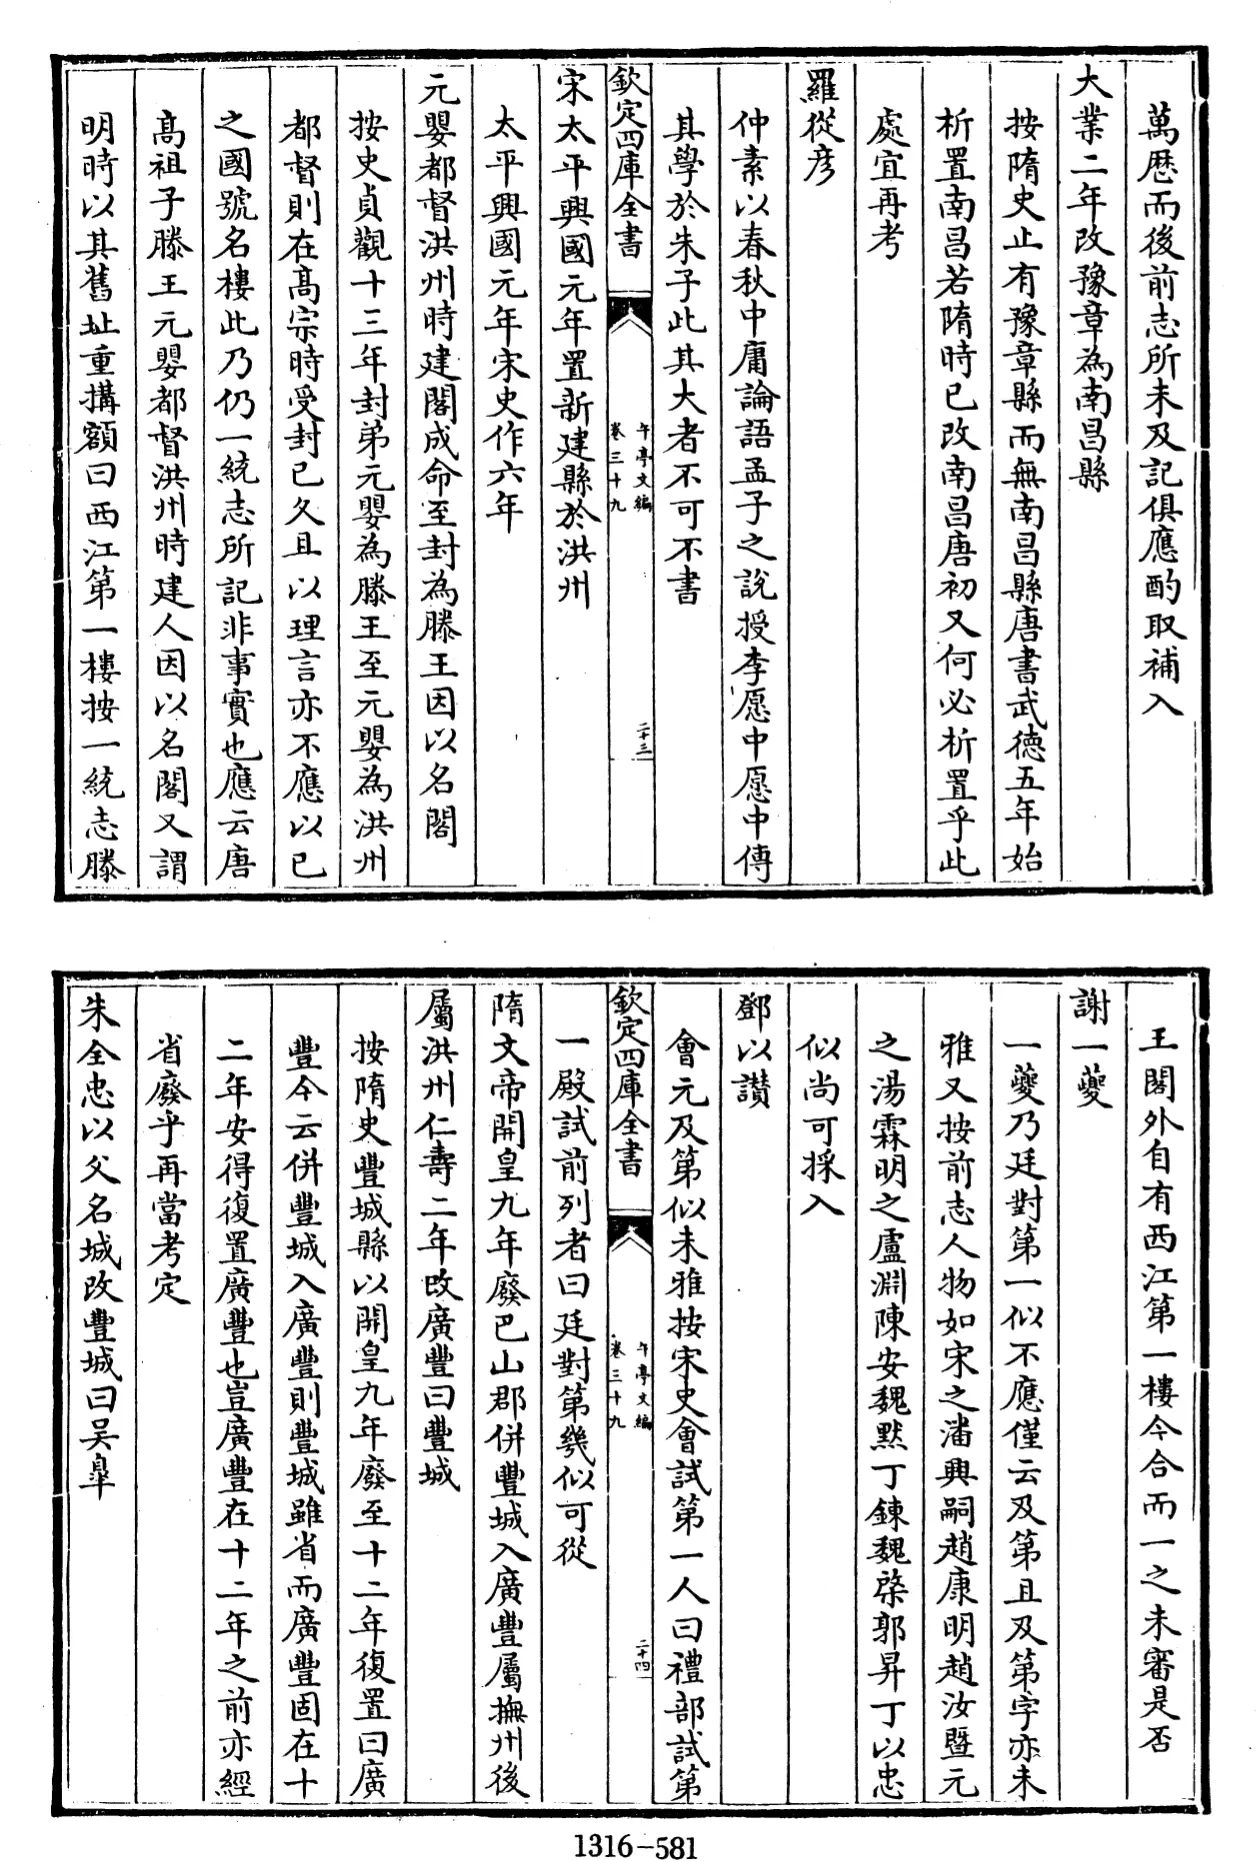 萬歷而後前志所未及記俱應酌取補入
大業二年改豫章為南昌縣
按隋史止有豫章縣而無南昌縣唐書武德五年始
析置南昌若隋時已改南昌唐初又何必析置乎此
處宜再考
羅從彥
仲素以春秋中庸論語孟子之說授李愿中愿中傳
其學於朱子此其大者不可不書
欽定四庫全書
午亭文編
卷三十九
二十三
宋太平興國元年置新建縣於洪州
太平興國元年宋史作六年
元嬰都督洪州時建閣成命至封為滕王因以名閣
按史貞觀十三年封弟元嬰為滕王至元嬰為洪州
都督則在高宗時受封已久且以理言亦不應以已
之國號名樓此乃仍一統志所記非事實也應云唐
髙祖子滕王元嬰都督洪州時建人因以名閣又謂
明時以其舊址重搆額曰西江第一樓按一統志滕
王閣外自有西江第一樓今合而一之未審是否
謝一夔
一夔乃廷對第一似不應僅云及第且及第字亦未
雅又按前志人物如宋之潘興嗣趙康明趙汝暨元
之湯霖明之盧淵陳安魏黙丁鍊魏棨郭昇丁以忠
似尚可採入
鄧以讚
會元及第似未雅按宋史會試第一人曰禮部試第
欽定四庫全書
午亭文編
卷三十九
二十四
一殿試前列者曰廷對第幾似可從
隋文帝開皇九年廢巴山郡併豐城入廣豐屬撫州後
屬洪州仁壽二年改廣豐曰豐城
按隋史豐城縣以開皇九年廢至十二年復置曰廣
豐今云併豐城入廣豐則豐城雖省而廣豐固在十
二年安得復置廣豐也豈廣豐在十二年之前亦經
省廢乎再當考定
朱全忠以父名城改豐城曰吳皐
1316-581